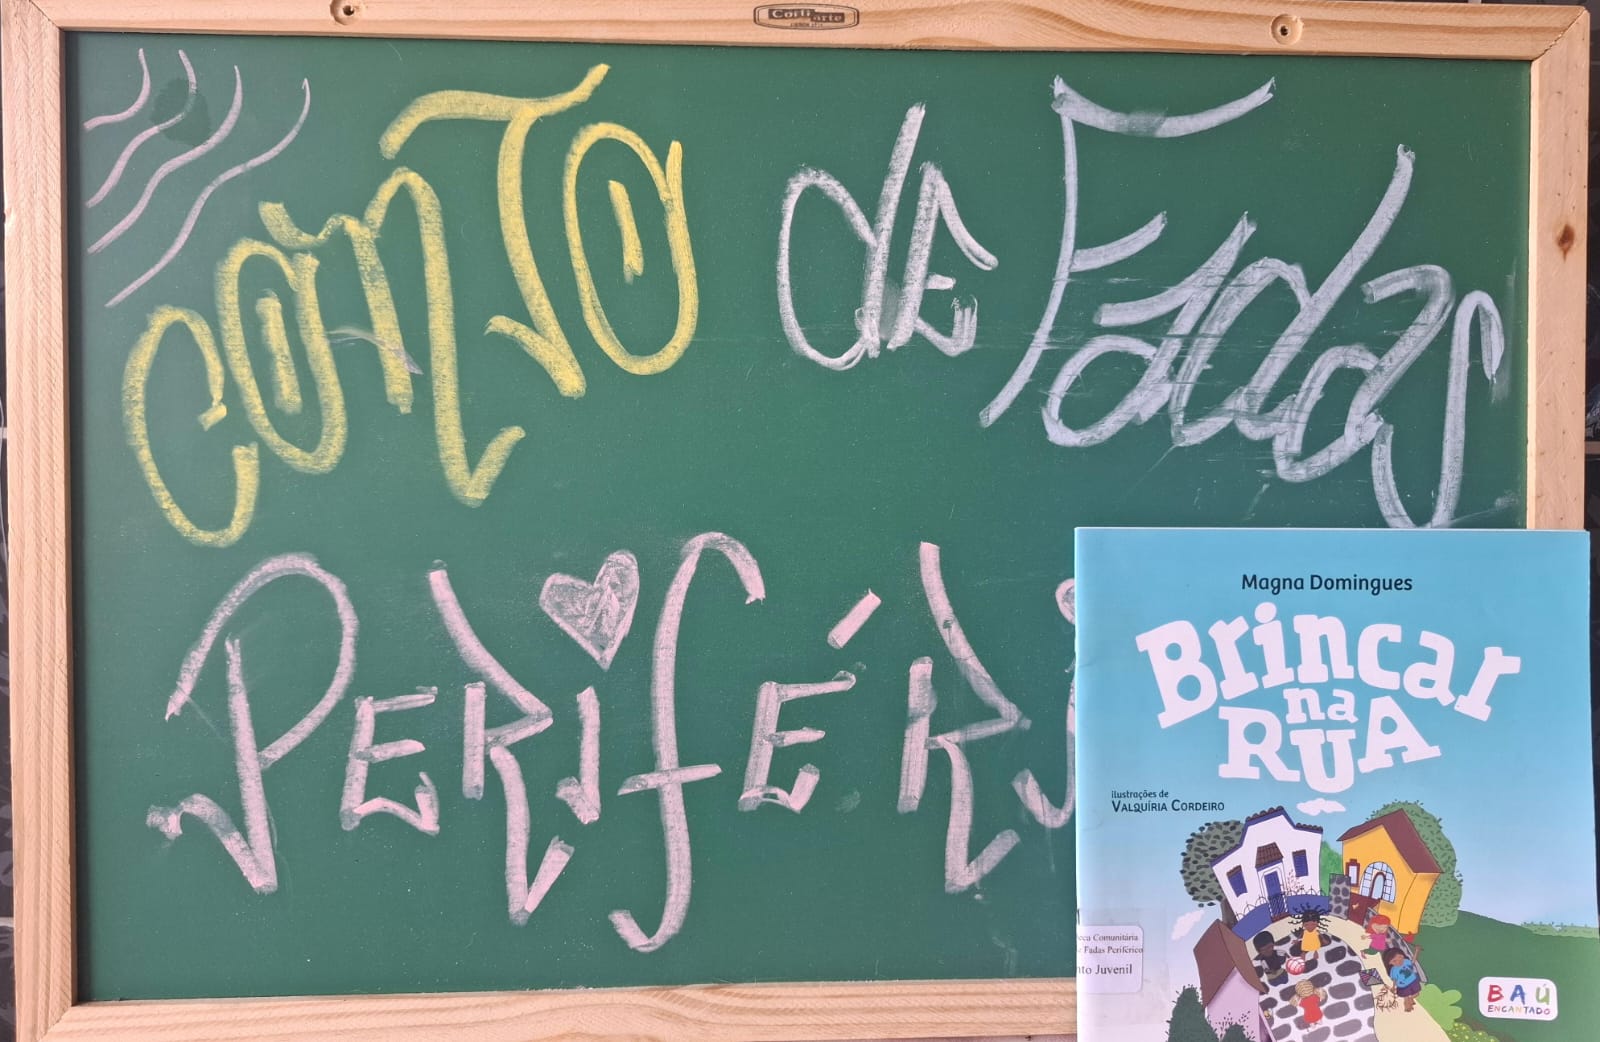 Corti arte
CONTO de Fadas
PERIFÉRi
Magna Domingues
Brincar
na
RUA
ilustrações de
VALQUÍRIA CORDEIRO
eca Comunitária
e Fadas Periférico
nto Juvenil
BAÚ
ENCANTADO